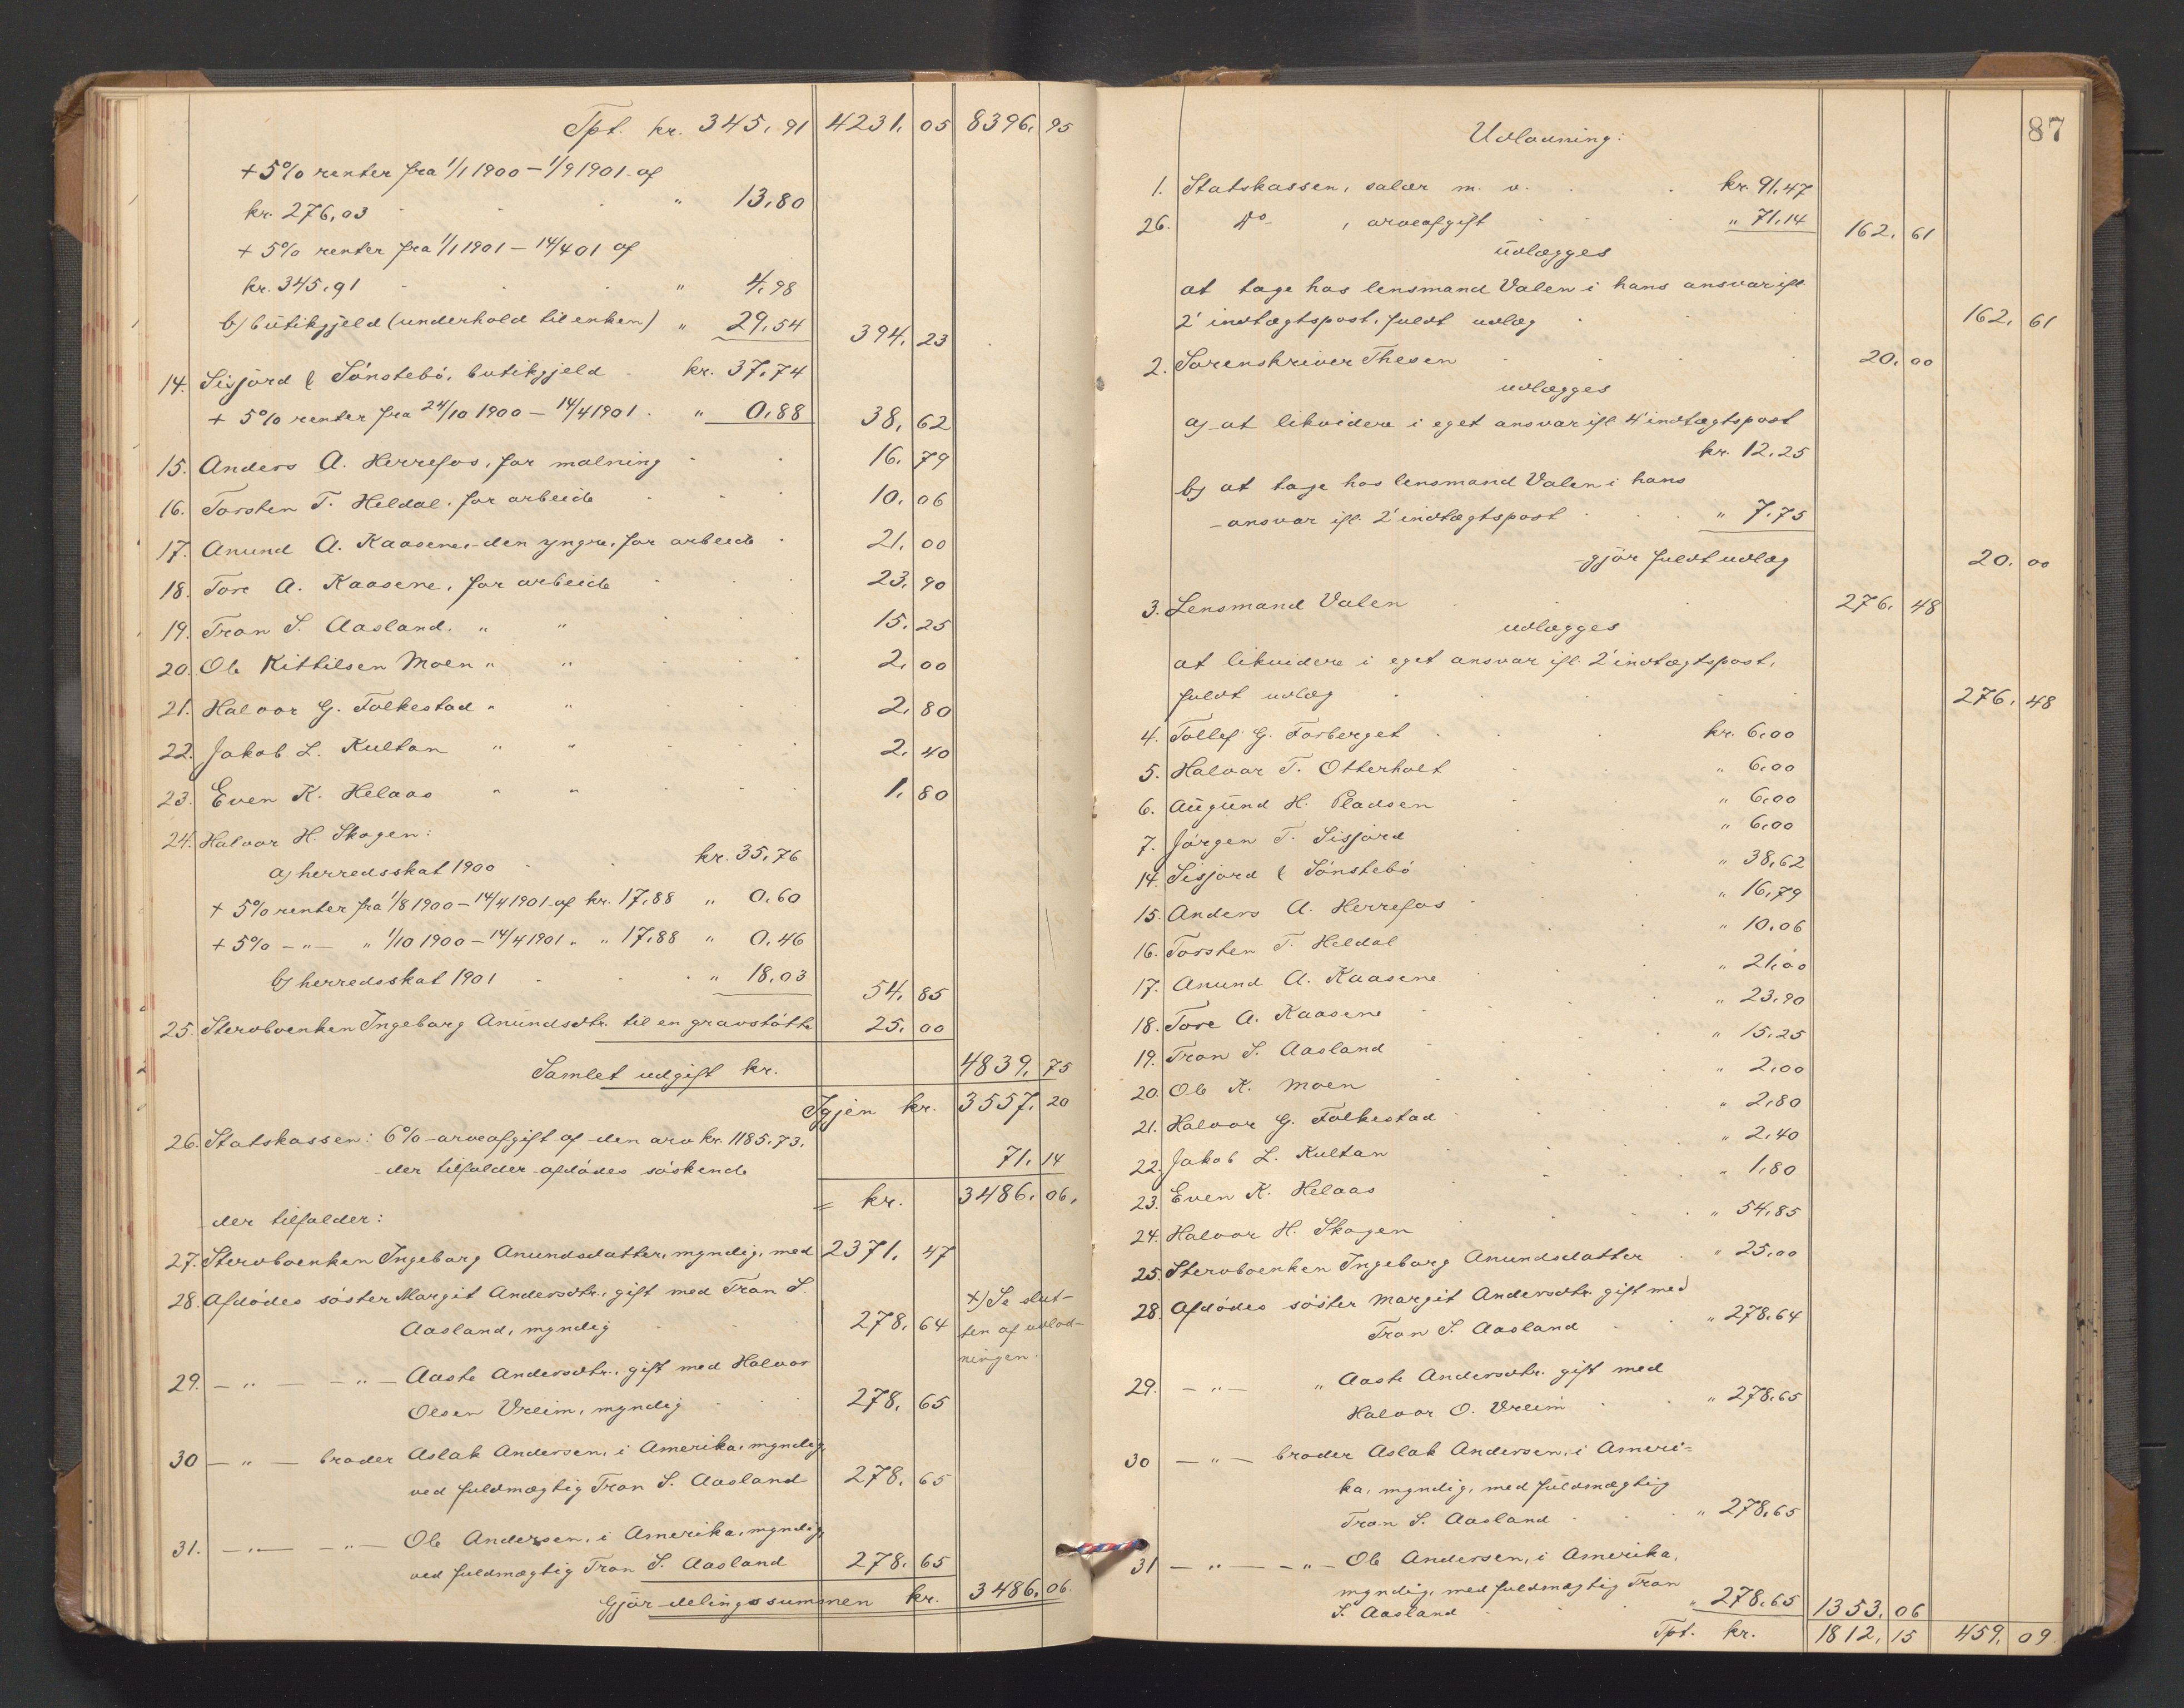 Tpt. kr. 345,91 4231,05 8396,95
+ 5% renter fra 1/1 1900 – 1/9 1901 af
kr. 276,03 " 13,80
+ 5% renter fra 1/1 1901 – 14/4 01 af
kr. 345,91 " 4,98
b) butikgjeld (underhold til enken) " 29,54 394,23
14. Sisjord & Sönstebö, butikgjeld kr. 37,74
+ 5% renter fra 24/10 1900 – 14/4 1901 " 0,88 38,62
15. Anders A. Herrefos, for malning 16,79
16. Torsten T. Heldal, for arbeide 10,06
17. Anund A. Kaasene, den yngre, for arbeide 21,00
18. Tore A. Kaasene, for arbeide 23,90
19. Tron S. Aasland, " " 15,25
20. Ole Kittilsen Moen " " 2,00
21. Halvor G. Folkestad " " 2,80
22. Jakob L. Kultan " " 2,40
23. Even K. Helaas " " 1,80
24. Halvor H. Skogen:
a) herredsskat 1900 kr. 35,76
+ 5% renter fra 1/8 1900 – 14/4 1901 af kr. 17,88 " 0,60
+ 5% – " – " 1/10 1900 – 14/4 1901 " " 17,88 " 0,46
b) herredsskat 1901 " 18,03 54,85
25. Stervboenken Ingeborg Anundsdtr. til en gravstötte 25,00
Samlet udgift kr. 4839,75
Igjen kr. 3557,20
26. Statskassen: 6% arveafgift af den arv kr. 1185,73,
der tilfalder afdödes söskende 71,14
= kr. 3486,06,
der tilfalder:
27. Stervboenken Ingeborg Anundsdatter, myndig, med 2371,47
28. Afdödes söster Margit Andersdtr., gift med Tron S.
Aasland, myndig 278,64
x) Se slut-
ten af udlod-
ningen.
29. – " – – " – Aaste Andersdtr., gift med Halvor
Olsen Vreim, myndig 278,65
30 – " – broder Aslak Andersen, i Amerika, myndig,
ved fuldmægtig Tron S. Aasland 278,65
31. – " – – " – Ole Andersen, i Amerika, myndig,
ved fuldmægtig Tron S. Aasland 278,65
Gjör delingssummen kr. 3486,06.
87
Udlodning:
1. Statskassen, salær m. v. kr. 91,47
26. Do , arveafgift " 71,14 162,61
udlægges
at tage hos lensmand Valen i hans ansvar ifl.
2' indtægtspost, fuldt udlæg 162,61
2. Sorenskriver Thesen 20,00
udlægges
a) at likvidere i eget ansvar ifl. 4' indtægtspost
kr. 12,25
b) at tage hos lensmand Valen i hans
ansvar ifl. 2' indtægtspost " 7,75
gjör fuldt udlæg 20,00
3. Lensmand Valen 276,48
udlægges
at likvidere i eget ansvar ifl. 2' indtægtspost,
fuldt udlæg 276,48
4. Tollef G. Forberget kr. 6,00
5. Halvor T. Otterholt " 6,00
6. Augund H. Pladsen " 6,00
7. Jörgen T. Sisjord " 6,00
14. Sisjord & Sönstebö " 38,62
15. Anders A. Herrefos " 16,79
16. Torsten T. Heldal " 10,06
17. Anund A. Kaasene " 21,00
18. Tore A. Kaasene " 23,90
19. Tron S. Aasland " 15,25
20. Ole K. Moen " 2,00
21. Halvor G. Folkestad " 2,80
22. Jakob L. Kultan " 2,40
23. Even K. Helaas " 1,80
24. Halvor H. Skogen " 54,85
25. Stervboenken Ingeborg Anundsdatter " 25,00
28. Afdödes söster Margit Andersdtr. gift med
Tron S. Aasland " 278,64
29. – " – " Aaste Andersdtr. gift med
Halvor O. Vreim " 278,65
30 – " – broder Aslak Andersen, i Ameri=
ka, myndig, med fuldmægtig
Tron S. Aasland " 278,65
31 – " – – " – Ole Andersen, i Amerika,
myndig, med fuldmægtig Tron
S. Aasland " 278,65 1353,06
Tpt. kr. 1812,15 459,09